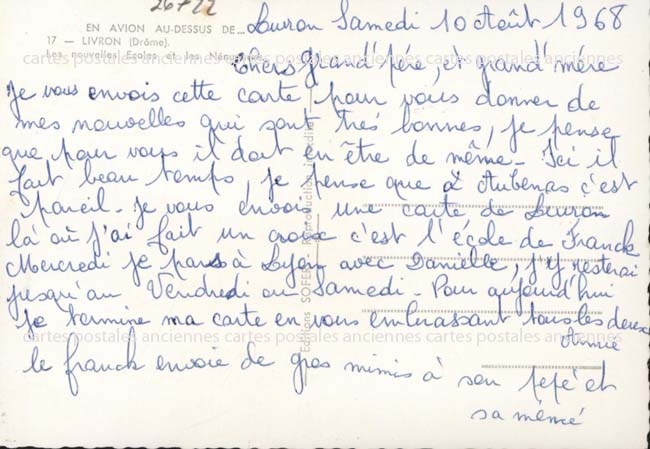 26722
EN AVION AU-DESSUS DE...
17 — LIVRON (Drôme).
Les nouvelles Ecoles et les
Livron Samedi 10 Août 1968
Chers grand'père, et grand'mère
Je vous envois cette carte pour vous donner de
mes nouvelles qui sont très bonnes, je pense
que, pour vous il doit en être de même - Ici il
fait beau temps, je pense que à Aubenas c'est
pareil - je vous envoi une carte de Livron
là où j'ai fait un croix c'est l'école de Franck
Mercredi je pars à Lyon avec Danielle, j'y resterai
jusqu'au Vendredi ou Samedi - Pour aujourd'hui
je termine ma carte en vous embrassant tous les deux
Annie
le franck envoie de gros mimis à son pépé et
sa mémé
cartes postales anciennes cartes postales anciennes cartes postales anciennes
cartes postales anciennes cartes postales anciennes cartes postales anciennes
Editions SOFER
Reproduction